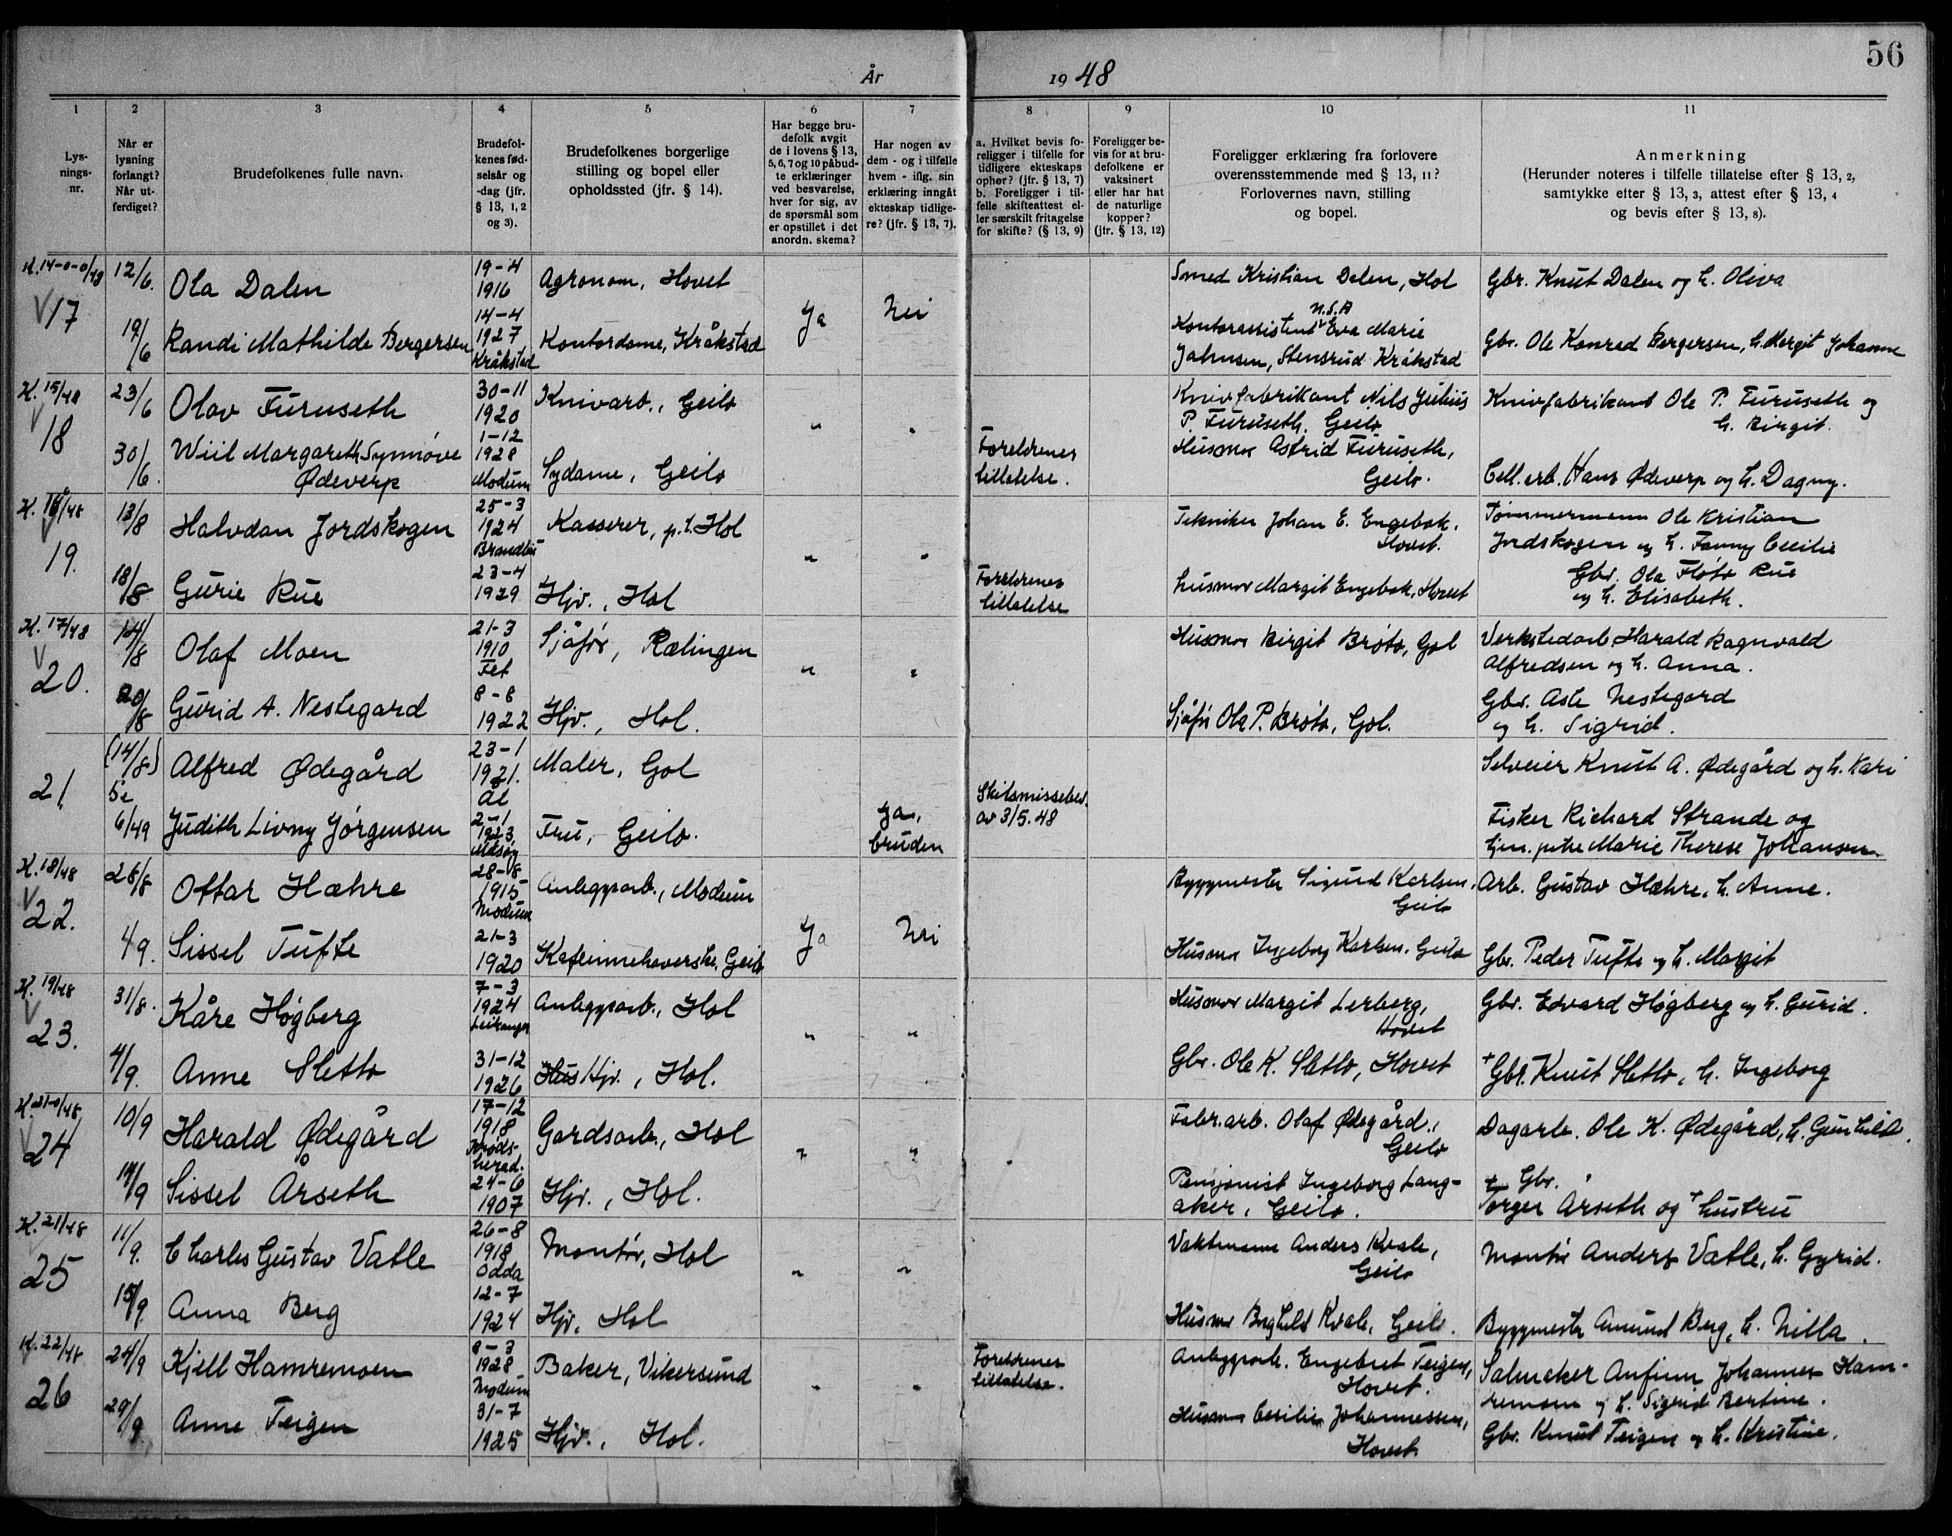 56
År 1948
1 2 3 4 5 6 7 8 9 10 11
Lysnings-
nr.
Når er
lysning
forlangt?
Når ut-
ferdiget?
Brudefolkenes fulle navn.
Brudefol-
kenes fød-
selsår og
-dag (jfr.
§ 13, 1, 2
og 3).
Brudefolkenes borgerlige
stilling og bopel eller
opholdssted (jfr. § 14).
Har begge bru-
defolk avgit
de i lovens § 13,
5, 6, 7 og 10 påbud-
te erklæringer
ved besvarelse,
hver for sig, av
de spørsmål som
er opstillet i det
anordn. skema?
Har nogen av
dem - og i tilfelle
hvem - iflg. sin
erklæring inngått
ekteskap tidlige-
re? (jfr. § 13, 7).
a. Hvilket bevis fo-
religger i tilfelle for
tidligere ekteskaps
ophør? (jfr. § 13, 7)
b. Foreligger i til-
felle skifteattest el-
ler særskilt fritagelse
for skifte? (§ 13, 9)
Foreligger be-
vis for at bru-
defolkene er
vaksinert
eller har hat
de naturlige
kopper?
(jfr. § 13, 12)
Foreligger erklæring fra forlovere
overensstemmende med § 13, 11?
Forlovernes navn, stilling
og bopel.
Anmerkning
(Herunder noteres i tilfelle tillatelse efter § 13, 2,
samtykke efter § 13, 3, attest efter § 13, 4
og bevis efter § 13, 8).
17
12/6. Ola Dalen 19-4 1916 Agronom, Hovet Smed Kristian Dalen, Hol Gbr. Knut Dalen og h. Oliva
Ja Nei
19/6 Randi Mathilde Bergersen 14-4 1927 Kråkstad Kontordame, Kråkstad Kontorassistent Eva Marie
Jahnsen, Stensrud Kråkstad Gbr. Ole Konrad Bergersen, h. Margit Johanne
K. 15/48
18
23/6 Olav Furuseth 30-11 1920 Knivarb., Geilo Knivfabrikant Nils Julius
P. Furuseth, Geilo Knivfabrikant Ole P. Furuseth og
h. Birgit.
30/6. Wiil Margareth Synnøve
Ødeverp 1-12 1928 Modum Sydame, Geilo Foreldrenes
tillatelse. Husmor Astrid Furuseth,
Geilo. Cell.arb. Hans Ødeverp og h. Dagny.
K. 16/48
19.
13/8 Halvdan Jordskogen 25-3 1924 Kasserer, p.t. Hol Tekniker Johan E. Engebak,
Hovet. Tømmermann Ole Kristian
Jordskogen og h. Fanny Cecilie
18/8 Gurie Rue 23-4 1929 Hjv., Hol Foreldrenes
tillatelse husmor Margit Engebak, Hovet Gbr. Ola Fløto Rue
og h. Elisabeth.
K. 17/48
20.
14/8 Olaf Moen 21-3 1910 Fet Sjåfør, Rælingen Husmor Birgit Brøto, Gol Verkstedarb. Harald Ragnvald
Alfredsen og h. Anna.
20/8 Gurid A. Nestegard 8-8 1922 Hjv., Hol. Sjåfør Ola P. Brøto, Gol. Gbr. Asle Nestegard
og h. Sigrid.
21
(14/8) Alfred Ødegård 23-1 1921. Ål Maler, Gol Selveier Knut A. Ødegård og h. Kari
5e
6/49 Judith Livny Jørgensen 2-1 1923, Måsøy Fru, Geilo. Ja,
bruden Skilsmissebev.
av 3/5.48 Fisker Richard Strande og
tjen. pike Marie Therese Johansen
K. 18/48
22.
28/8 Ottar Hæhre 28-8 1915 Modum Anleggsarb., Modum Byggmester Sigurd Karlsen,
Geilo Arb. Gustav Hæhre, h. Anne.
Ja Nei
4/9. Sissel Tufte 21-3 1920 Kafeinnehaverske, Geilo Husmor Ingeborg Karlsen, Geilo Gbr. Peder Tufte og h. Margit
K. 19/48
23.
31/8. Kåre Høgberg 7-3 1924 Leikanger Anleggsarb., Hol Husmor Margit Lerberg,
Hovet Gbr. Edvard Høgberg og h. Gurid.
4/9. Anne Sletto 31-12 1926 Hus Hjv., Hol. Gbr. Ole K. Sletto, Hovet +Gbr. Knut Sletto, h. Ingeborg
24
10/9 Harald Ødegård 17-12 1918 Krøds-
herad. Gardsarb., Hol Fabr.arb. Olaf Ødegård,
Geilo Dagarb. Ole K. Ødegård, h. Gunhild.
14/9 Sissel Årseth 24-6 1907 Hjv., Hol. Pensjonist Ingeborg Lang-
aker, Geilo. + Gbr.
Torger Årseth og + hustru
K. 21/48
25
11/9. Charles Gustav Vatle 26-8 1918 Odda Montør, Hol Vaktmann Anders Kvale,
Geilo Montør Anders Vatle, h. Gyrid.
15/9 Anna Berg 12-7 1924 Hjv. Hol Husmor Borghild Kvale, Geilo. Byggmester Amund Berg, h. Nilla.
K. 22/48
26
24/9 Kjell Hamremoen 8-3 1928 Modum Baker, Vikersund Foreldrenes
tillatelse. Anleggsarb. Engebret Teigen,
Hovet. Salmaker Anfinn Johannes Ham-
remoen og h. Sigrid Bertine.
29/9 Anne Teigen 31-7 1925 Hjv., Hol. Husmor Cecilie Johannessen,
Hovet. Gbr. Knut Teigen og h. Kristine.